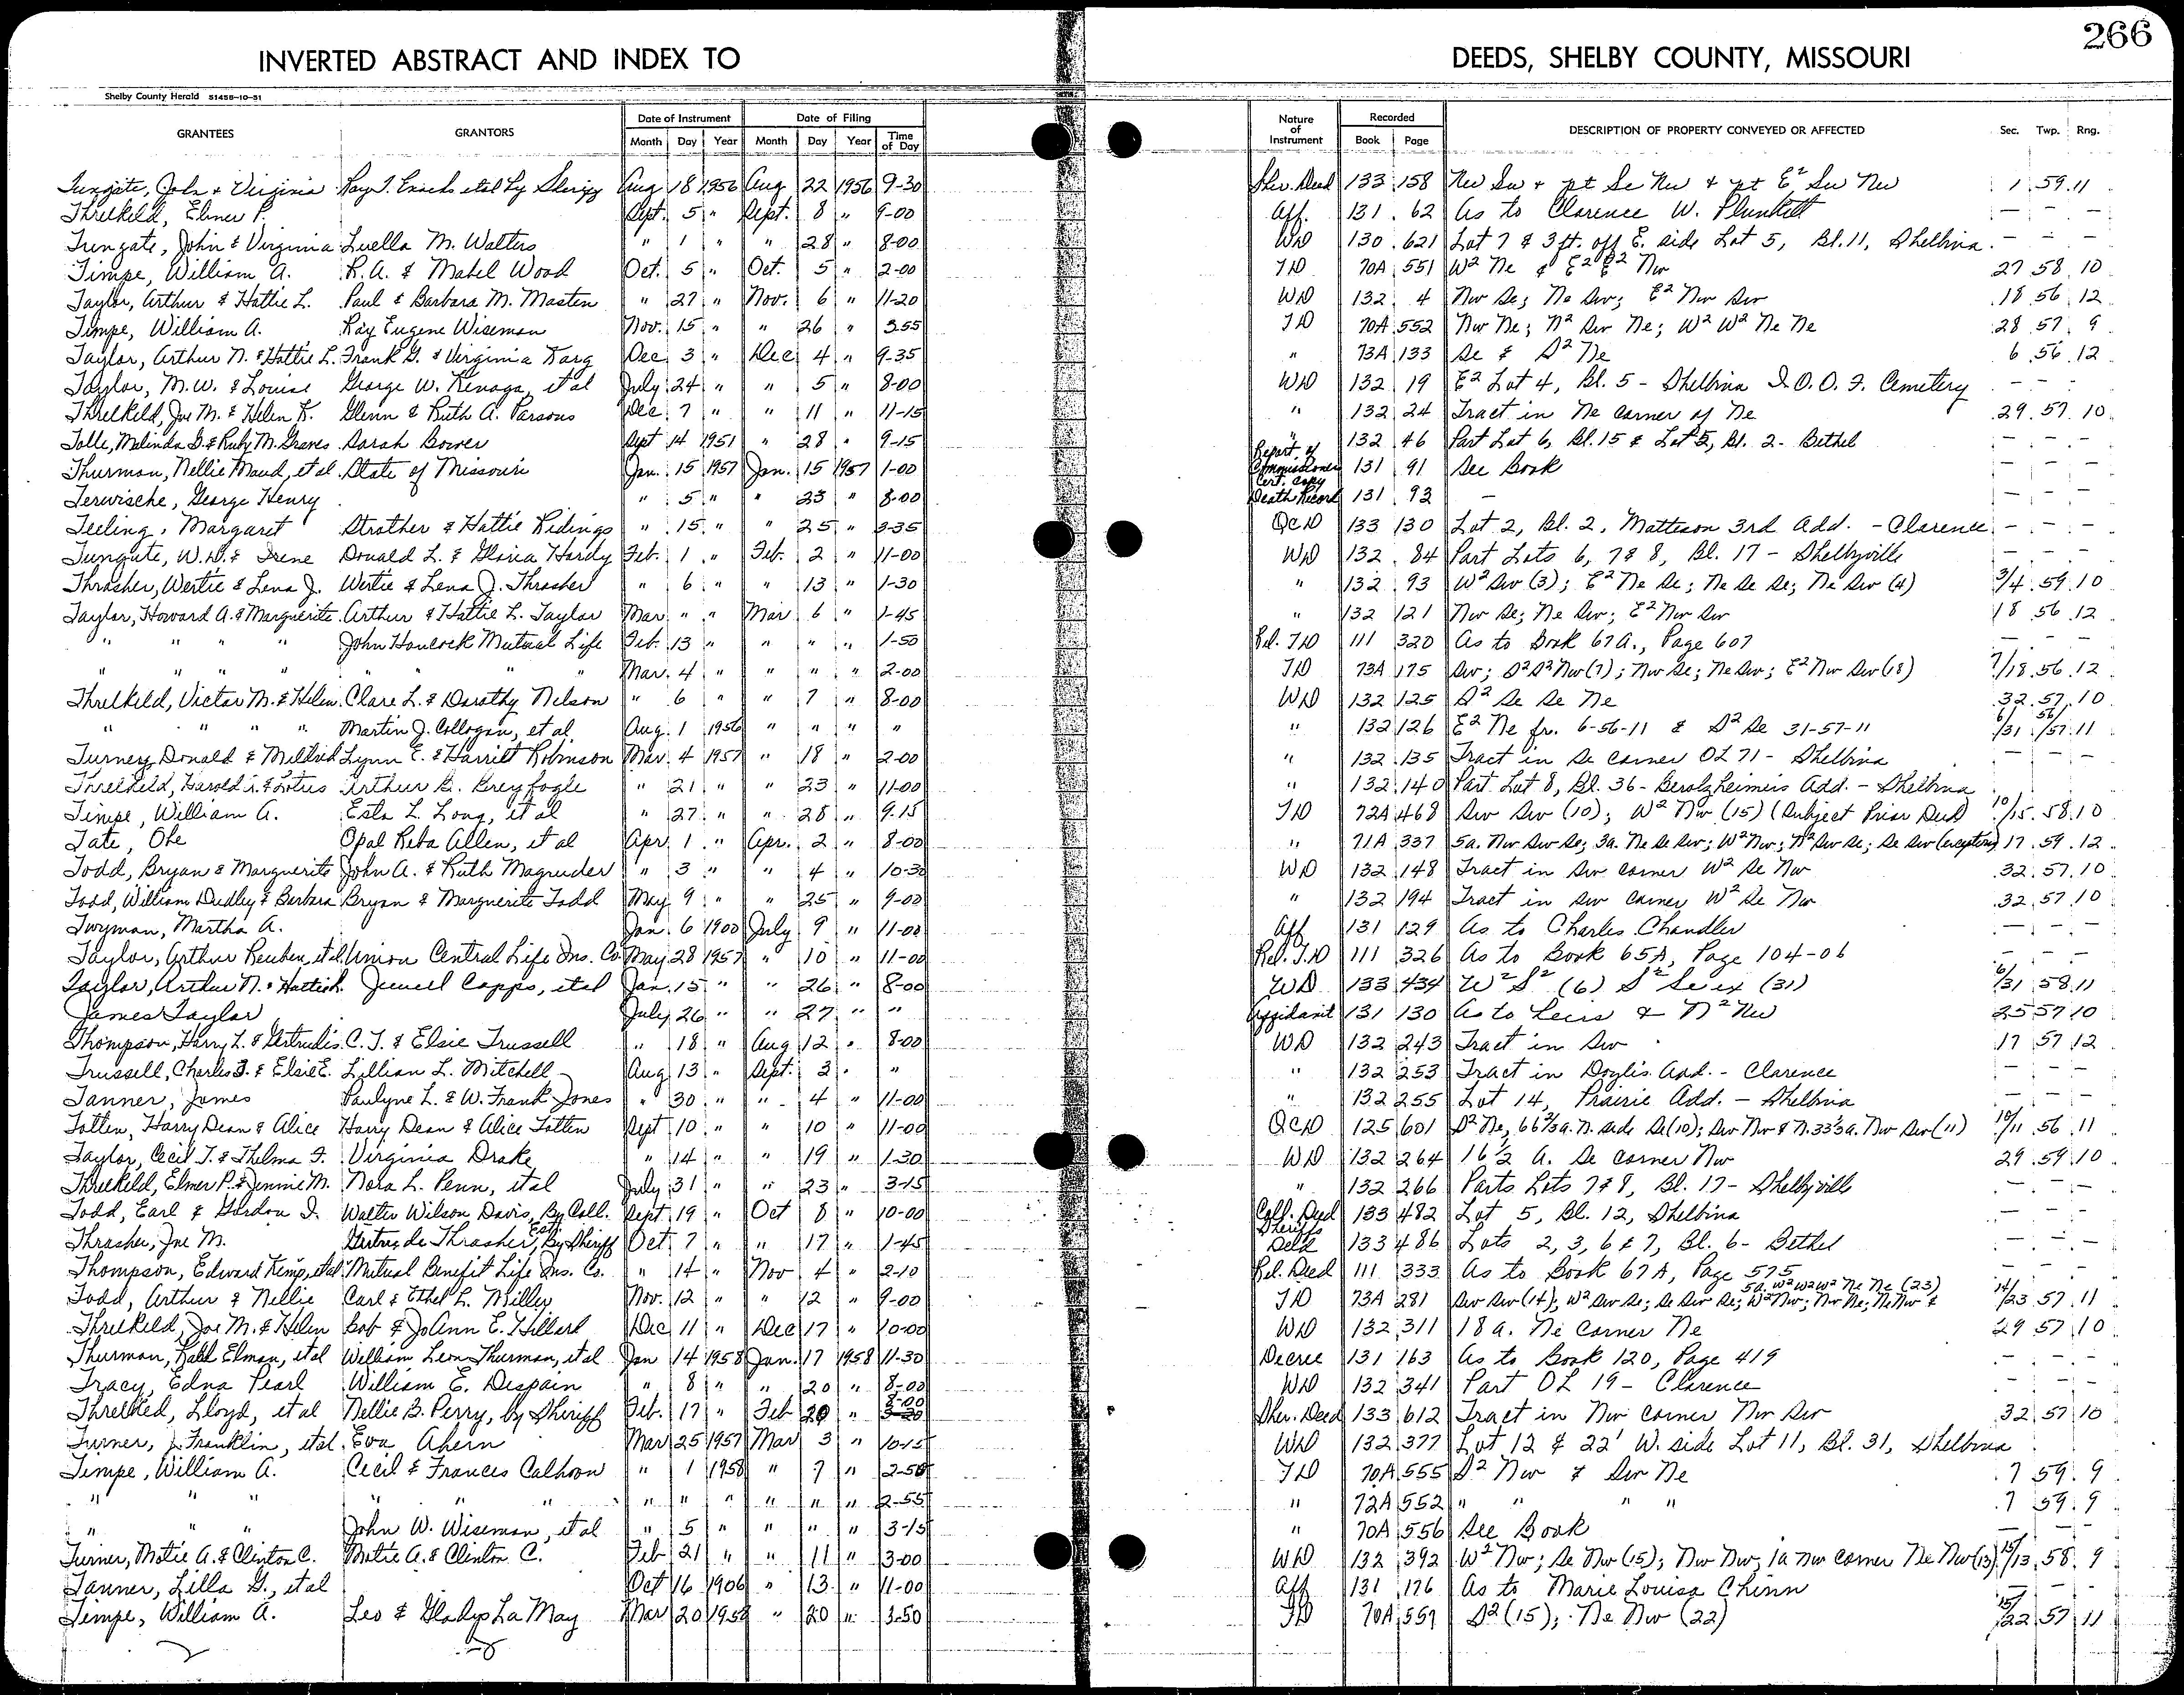 266
INVERTED ABSTRACT AND INDEX TO DEEDS, SHELBY COUNTY, MISSOURI
Shelby County Herald 51458-10-51
GRANTEES GRANTORS Date of Instrument Date of Filing Nature of Instrument Recorded DESCRIPTION OF PROPERTY CONVEYED OR AFFECTED Sec. Twp. Rng.
Month Day Year Month Day Year Time of Day Book Page
Tungate, John & Virginia Ray T. Enochs etal by Sheriff Aug 18 1956 Aug 22 1956 9-30 Sher. Deed 133 158 Ne Sw & pt Se Nw & pt E² Sw Nw 1 59 11
Threlkeld, Elmer P. Sept. 5 " Sept. 8 " 9-00 Aff. 131 62 As to Clarence W. Plunkett - - -
Tungate, John & Virginia Luella M. Walters " 1 " " 28 " 8-00 WD 130 621 Lot 7 & 3 ft. off E. side Lot 5, Bl. 11, Shelbina - - -
Timpe, William A. R.A. & Mabel Wood Oct. 5 " Oct. 5 " 2-00 TD 70A 551 W² Ne & E² E² Nw 27 58 10
Taylor, Arthur & Hattie L. Paul & Barbara M. Masten " 27 " Nov. 6 " 11-20 WD 132 4 Nw Se; Ne Sw; E² Nw Sw 18 56 12
Timpe, William A. Ray Eugene Wiseman Nov. 15 " " 26 " 3.55 TD 70A 552 Nw Ne; N² Sw Ne; W² W² Ne Ne 28 57 9
Taylor, Arthur N. & Hattie L. Frank G. & Virginia Karg Dec. 3 " Dec. 4 " 9-35 " 73A 133 Se & S² Ne 6 56 12
Taylor, M.W. & Louise George W. Kenaga, et al July 24 " " 5 " 8-00 WD 132 19 E² Lot 4, Bl. 5 - Shelbina I.O.O.F. Cemetery - - -
Threlkeld, Joe M. & Helen K. Glenn & Ruth A. Parsons Dec. 7 " " 11 " 11-15 " 132 24 Tract in Ne corner of Ne 29 57 10
Tolle, Melinda G. & Ruby M. Graves Sarah Bower Sept 14 1951 " 28 " 9-15 " 132 46 Part Lot 6, Bl. 15 & Lot 5, Bl. 2 - Bethel - - -
Thurman, Nellie Maud, et al State of Missouri Jan. 15 1957 Jan. 15 1957 1-00 Report of Commissioner 131 91 See Book - - -
Terwische, George Henry " 5 " " 23 " 8-00 Cert. copy Death Record 131 92 - - - -
Teeling, Margaret Strather & Hattie Ridings " 15 " " 25 " 3-35 QcD 133 130 Lot 2, Bl. 2, Matteson 3rd Add. - Clarence - - -
Tungate, W.D. & Irene Donald L. & Gloria Hardy Feb. 1 " Feb. 2 " 11-00 WD 132 84 Part Lots 6, 7 & 8, Bl. 17 - Shelbyville - - -
Thrasher, Wertie & Lena J. Wertie & Lena J. Thrasher " 6 " " 13 " 1-30 " 132 93 W² Sw (3); E² Ne Se; Ne Se Se; Ne Sw (4) 3/4 59 10
Taylor, Howard A. & Marguerite Arthur & Hattie L. Taylor Mar " " Mar 6 " 1-45 " 132 121 Nw Se; Ne Sw; E² Nw Sw 18 56 12
" " " " John Hancock Mutual Life Feb. 13 " " " " 1-50 Rel. TD 111 320 As to Book 67A., Page 607 - - -
" " " " " " " Mar. 4 " " " " 2-00 TD 73A 175 Sw; S² S² Nw (7); Nw Se; Ne Sw; E² Nw Sw (18) 7/18 56 12
Threlkeld, Victor M. & Helen Clare L. & Dorothy Nelson " 6 " " 7 " 8-00 WD 132 125 S² Se Se Ne 32 57 10
" " " " Martin J. Collogan, et al Aug. 1 1956 " " " " " 132 126 E² Ne fr. 6-56-11 & S² Se 31-57-11 6/31 56/57 11
Turney Donald & Mildred Lynn E. & Harriet Robinson Mar. 4 1957 " 18 " 2-00 " 132 135 Tract in Se corner OL 71 - Shelbina - - -
Threlkeld, Harold L. & Lotus Arthur G. Breyfogle " 21 " " 23 " 11-00 " 132 140 Part Lot 8, Bl. 36 - Berolzheimers Add. - Shelbina
Timpe, William A. Esta L. Long, et al " 27 " " 28 " 9.15 TD 72A 468 Sw Sw (10); W² Nw (15) (Subject Prior Deed) 10/15 58 10
Tate, Obe Opal Reba Allen, et al Apr. 1 " Apr. 2 " 8-00 " 71A 337 5a. Nw Sw Se; 3a. Ne Se Sw; W² Nw; N² Sw Se; Se Sw (exception) 17 59 12
Todd, Bryan & Marguerite John A. & Ruth Magruder " 3 " " 4 " 10-30 WD 132 148 Tract in Sw corner W² Se Nw 32 57 10
Todd, William Dudley & Barbara Bryan & Marguerite Todd May 9 " " 25 " 9-00 " 132 194 Tract in Sw corner W² Se Nw 32 57 10
Twyman, Martha A. Jan. 6 1900 July 9 " 11-00 Aff 131 129 As to Charles Chandler - - -
Taylor, Arthur Reuben, et al Union Central Life Ins. Co. May 28 1957 " 10 " 11-00 Rel. TD 111 326 As to Book 65A, Page 104-06 - - -
Taylor, Arthur N. & Hattie L. Jewell Capps, etal Jan. 15 " " 26 " 8-00 WD 133 434 W² S² (6) S² Se ex (31) 6/31 58 11
James Taylor July 26 " " 27 " " Affidavit 131 130 As to Leis & N² Nw 25 57 10
Thompson, Harry L. & Gertrude C.T. & Elsie Trussell " 18 " Aug 12 " 8-00 WD 132 243 Tract in Sw 17 57 12
Trussell, Charles T. & Elsie E. Lillian L. Mitchell Aug 13 " Sept. 3 " " " 132 253 Tract in Doyle's Add. - Clarence - - -
Tanner, James Paulyne L. & W. Frank Jones " 30 " " 4 " 11-00 " 132 255 Lot 14, Prairie Add. - Shelbina - - -
Totten, Harry Dean & Alice Harry Dean & Alice Totten Sept 10 " " 10 " 11-00 QcD 125 601 S² Ne, 66⅔a. N. side Se (10); Sw Nw & N. 33⅓a. Nw Sw (11) 10/11 56 11
Taylor, Cecil T. & Thelma F. Virginia Drake " 14 " " 19 " 1-30 WD 132 264 16½ A. Se corner Nw 29 59 10
Threlkeld, Elmer P. & Jennie M. Nora L. Penn, et al July 31 " " 23 " 3-15 " 132 266 Parts Lots 7 & 8, Bl. 17 - Shelbyville - - -
Todd, Earl & Gordon I. Walter Wilson Davis, By Coll. Sept 19 " Oct 8 " 10-00 Coll. Deed 133 482 Lot 5, Bl. 12, Shelbina - - -
Thrasher, Joe M. Gertrude Thrasher Est. By Sheriff Oct 7 " " 17 " 1-45 Sheriff's Deed 133 486 Lots 2, 3, 6 & 7, Bl. 6 - Bethel - - -
Thompson, Edward Kemp, et al Mutual Benefit Life Ins. Co. " 14 " Nov 4 " 2-10 Rel. Deed 111 333 As to Book 67A, Page 575 - - -
Todd, Arthur & Nellie Carl & Ethel L. Miller Nov. 12 " " 12 " 9-00 TD 73A 281 Sw Sw (14); W² Sw Se; Se Sw Se; W² Nw; Nw Ne; Ne Nw & 5a. W² W² W² Ne Ne (23) 14/23 57 11
Threlkeld, Joe M. & Helen Bob & JoAnn E. Hillard Dec 11 " Dec 17 " 10-00 WD 132 311 18 a. Ne corner Ne 29 57 10
Thurman, Elman, et al William Leon Thurman, et al Jan 14 1958 Jan. 17 1958 11-30 Decree 131 163 As to Book 120, Page 419 - - -
Tracy, Edna Pearl William E. Despain " 8 " " 20 " 8-00 WD 132 341 Part OL 19 - Clarence - - -
Threlked, Lloyd, et al Nellie B. Perry, by Sheriff Feb. 17 " Feb 20 " 8-00 Sher. Deed 133 612 Tract in Nw corner Nw Sw 32 57 10
Turner, J. Franklin, et al Eva Ahern Mar 25 1957 Mar 3 " 10-15 WD 132 377 Lot 12 & 22' W. side Lot 11, Bl. 31, Shelbina
Timpe, William A. Cecil & Frances Calhoon " 1 1958 " 7 " 2-50 TD 70A 555 S² Nw & Sw Ne 7 59 9
" " " " " " " " " " " " 2-55 " 72A 552 " " " " 7 59 9
" " " John W. Wiseman, et al " 5 " " " " 3-15 " 70A 556 See Book - - -
Turner, Motie A. & Clinton C. Motie A. & Clinton C. Feb 21 " " 11 " 3-00 WD 132 392 W² Nw; Se Nw (15); Nw Nw; 1a Nw corner Ne Nw (13) 15/13 58 9
Tanner, Lilla G., et al Oct 16 1906 " 13 " 11-00 Aff 131 176 As to Marie Louisa Chinn - - -
Timpe, William A. Leo & Gladys La May Mar 20 1958 " 20 " 3-50 TD 70A 557 S² (15); Ne Nw (22) 15/22 57 11